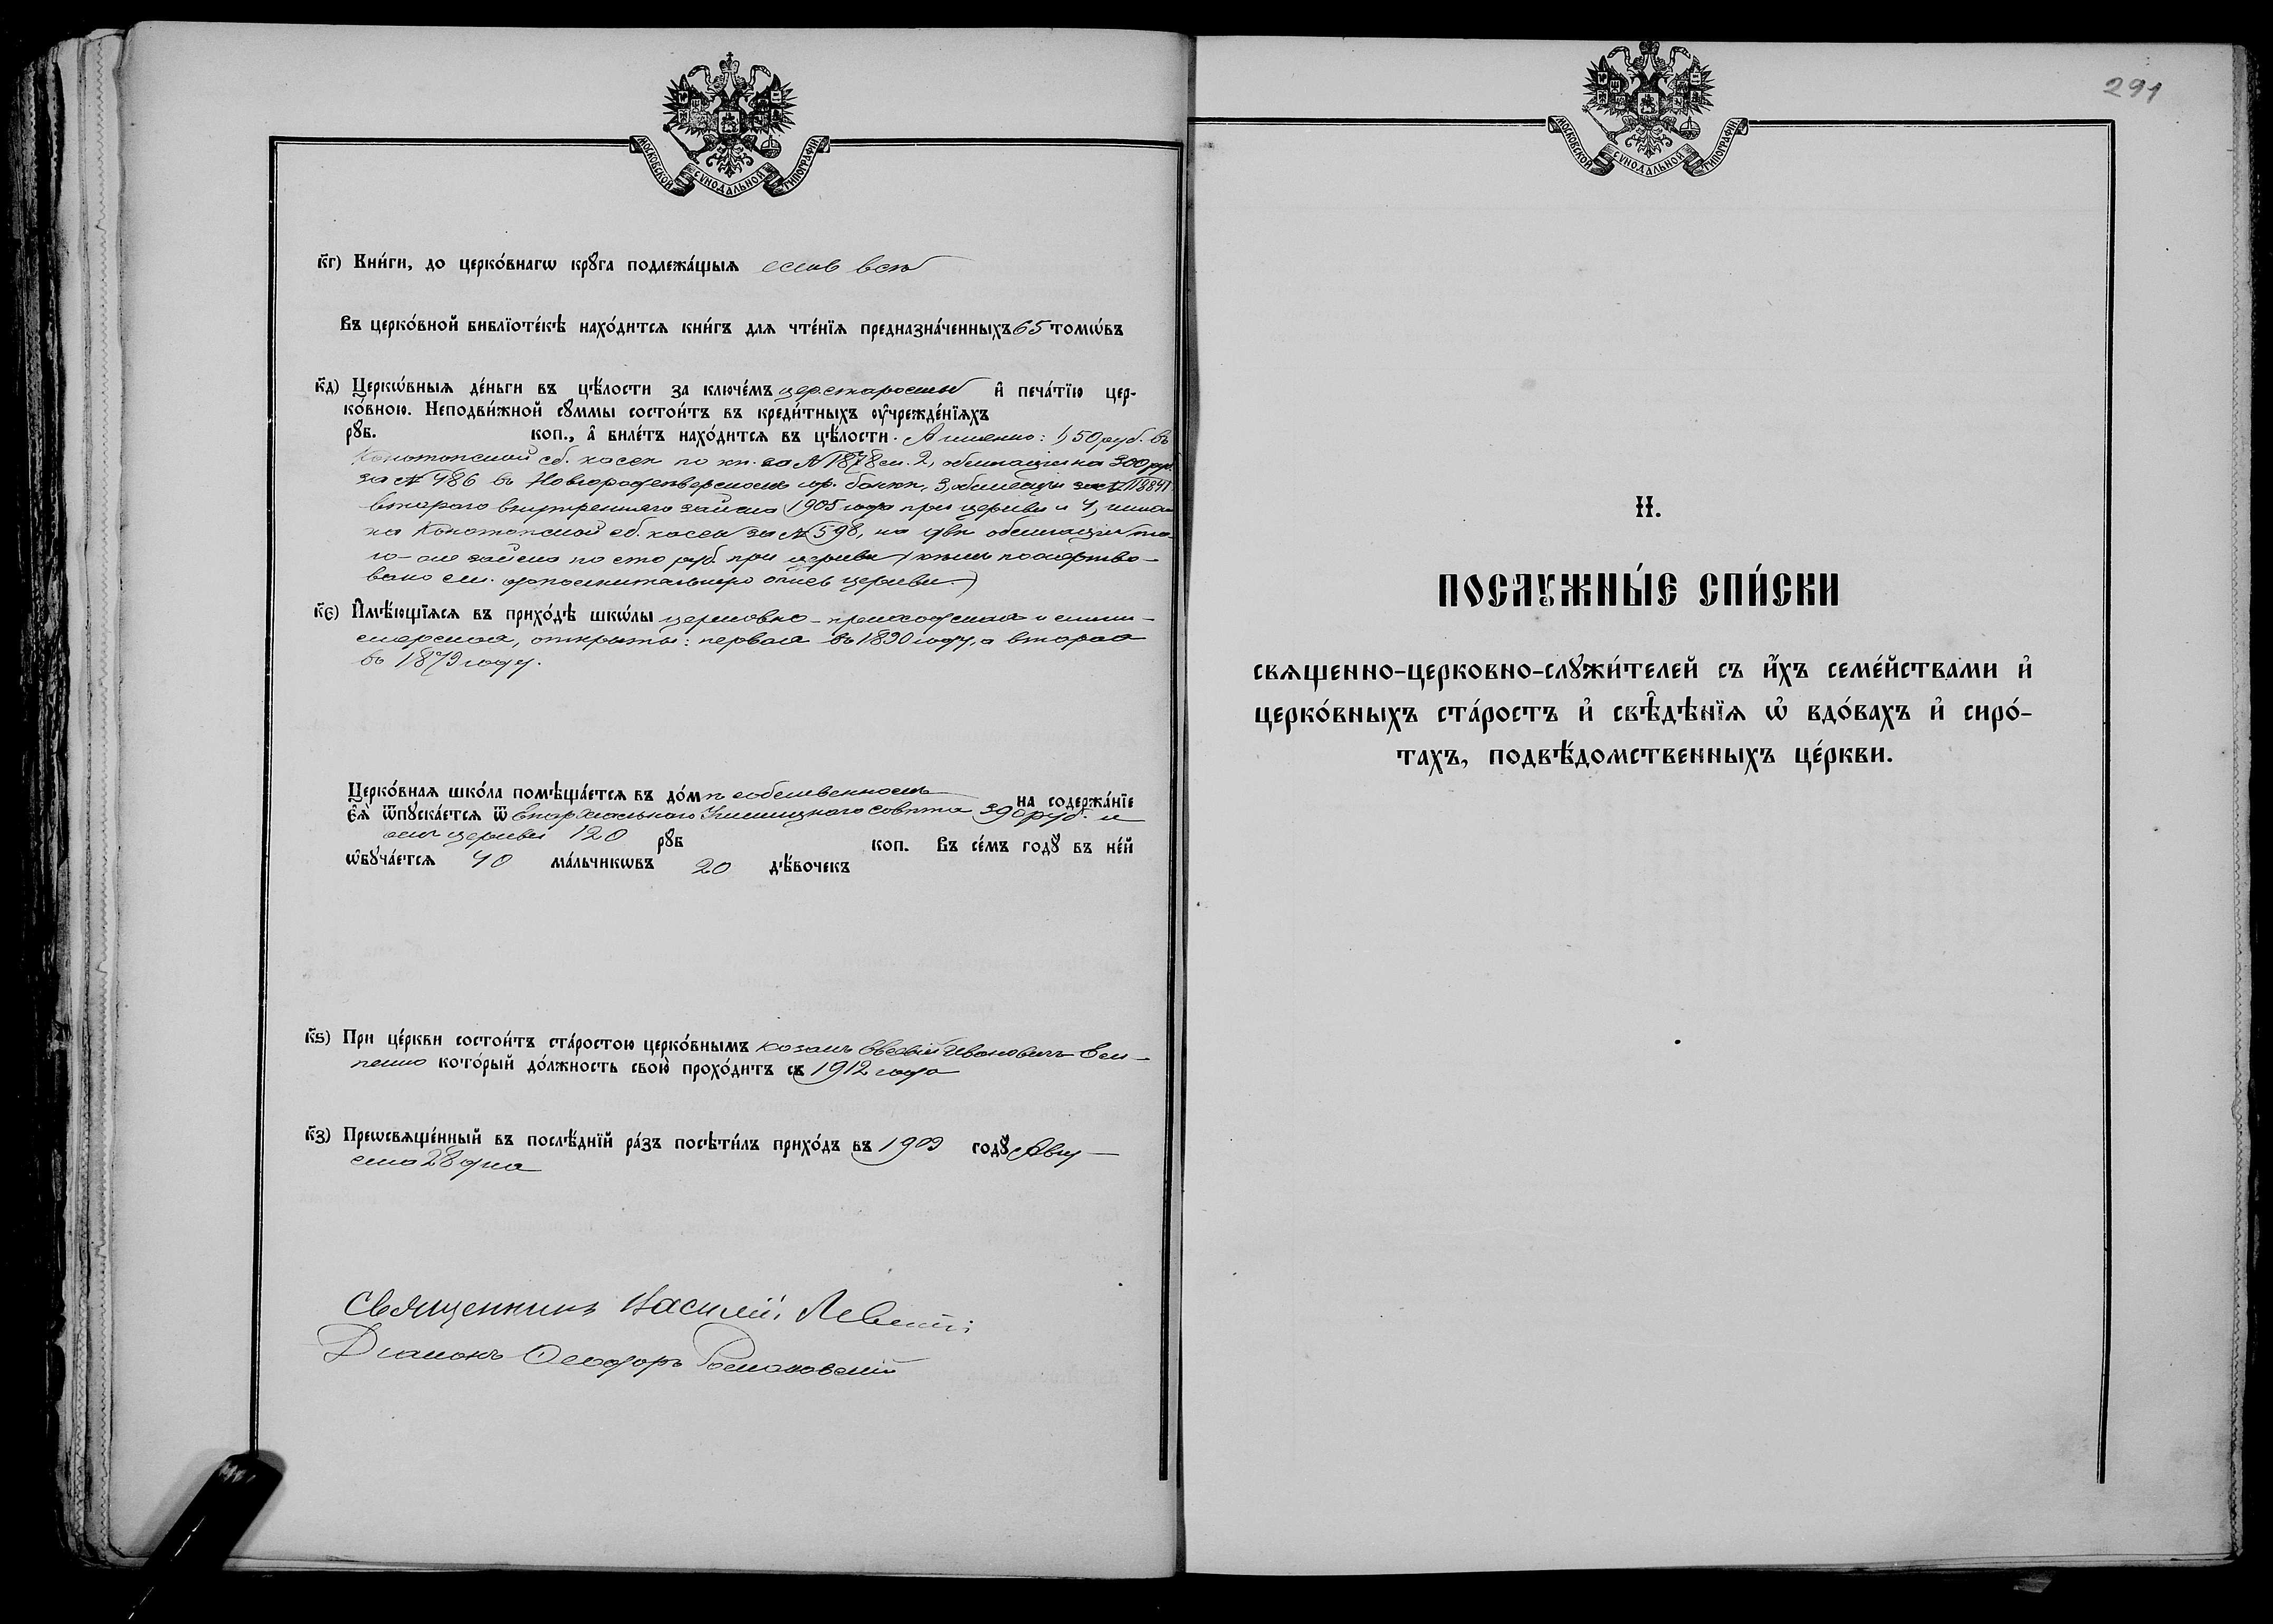 МОСКОВСКОЙ СѴНОДАЛЬНОЙ ТИПОГРАФІИ
к҃г) Кни́ги, до церко́внагѡ крꙋ́га подлежа́щыѧ есть всѣ
Въ церко́вной библїоте́кѣ нахо́дитсѧ кни́гъ длѧ чте́нїѧ предназна́ченныхъ 65 томѡ́въ
к҃д) Церкѡ́вныѧ де́ньги въ цѣ́лости за ключе́мъ цер. старосты и҆ печа́тїю цер-
ко́вною. Неподви́жной сꙋ́ммы состои́тъ въ креди́тныхъ ᲂу҆чрежде́нїѧхъ
рꙋб. коп., а҆ биле́тъ нахо́дитсѧ въ цѣ́лости. А именно: 1, 50 руб. въ
Конотопской сб. кассѣ по кн. за № 1878 2, облигація на 300 руб.
за № 986 въ Новгородсѣверскомъ гор. банкѣ, 3, облигація за №
втораго внутренняго займа 1905 года при церкви и 4,
ка Конотопской сб. кассы за № 598, на двѣ облигаціи то-
го-же займа по сто руб. при церкви пожертво-
вано см. дополнительную опись церкви)
к҃є) И҆мѣ́ющїѧсѧ въ прихо́дѣ шкѡ́лы церковно-приходская и земи-
стерская, открыты: первая въ 1890 году, а вторая
въ 1879 году.
Церко́вная шко́ла помѣща́етсѧ въ до́мѣ собственномъ на содержа́нїе
є҆ѧ̀ ѿпꙋска́етсѧ ѿ Епархіальнаго Училищнаго Совѣта 390 руб. и
отъ церкви 120 рꙋб коп. Въ се́мъ годꙋ̀ въ не́й
ѡ҆бꙋча́етсѧ 40 ма́льчикѡвъ 20 дѣ́вочекъ
к҃ѕ) При це́ркви состои́тъ ста́ростою церко́внымъ козакъ Евсевій Ивановичъ
кото́рый до́лжность свою̀ прохо́дитъ съ 1912 года
к҃з) Преѡсвѧще́нный въ послѣ́днїй ра́зъ посѣти́лъ прихо́дъ въ 1909 годꙋ̀ Авгу-
ста 28 дня
Священникъ Василій Левит
Діаконъ Ѳеодоръ Романовскій
291
МОСКОВСКОЙ СѴНОДАЛЬНОЙ ТИПОГРАФІИ
II.
ПОСЛꙊЖНЫ́Е СПИ́СКИ
свѧщенно-церковно-слꙋжи́телей съ и҆́хъ семе́йствами и҆
церко́вныхъ ста́ростъ и҆ свѣ́дѣнїѧ ѡ҆ вдо́вахъ и҆ сиро́-
тахъ, подвѣ́домственныхъ це́ркви.